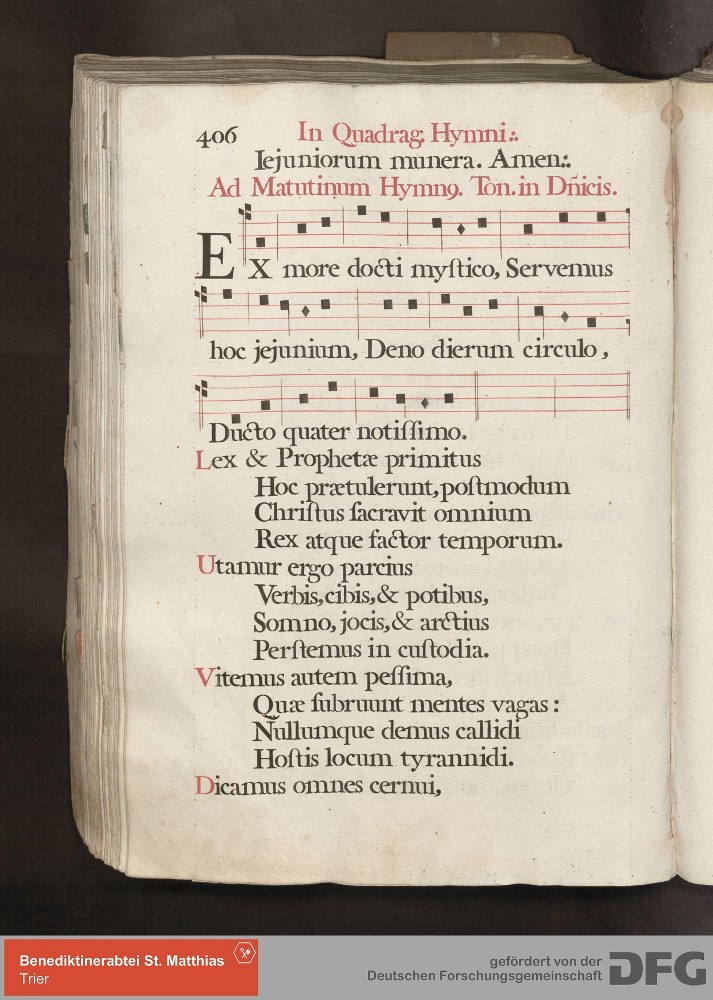 406 In Quadrag: Hymni:.
Iejuniorum munera. Amen:.
Ad Matutinum Hymn9. Ton. in Dn̄icis.
EX more docti myſtico, Servemus
hoc jejunium, Deno dierum circulo,
Ducto quater notiſſimo.
Lex & Prophetæ primitus
Hoc prætulerunt, poſtmodum
Chriſtus ſacravit omnium
Rex atque factor temporum.
Utamur ergo parcius
Verbis, cibis, & potibus,
Somno, jocis, & arctius
Perſtemus in cuſtodia.
Vitemus autem peſſima,
Quæ ſubruunt mentes vagas:
Nullumque demus callidi
Hoſtis locum tyrannidi.
Dicamus omnes cernui,
Benediktinerabtei St. Matthias
Trier
gefördert von der
Deutschen Forschungsgemeinschaft
DFG